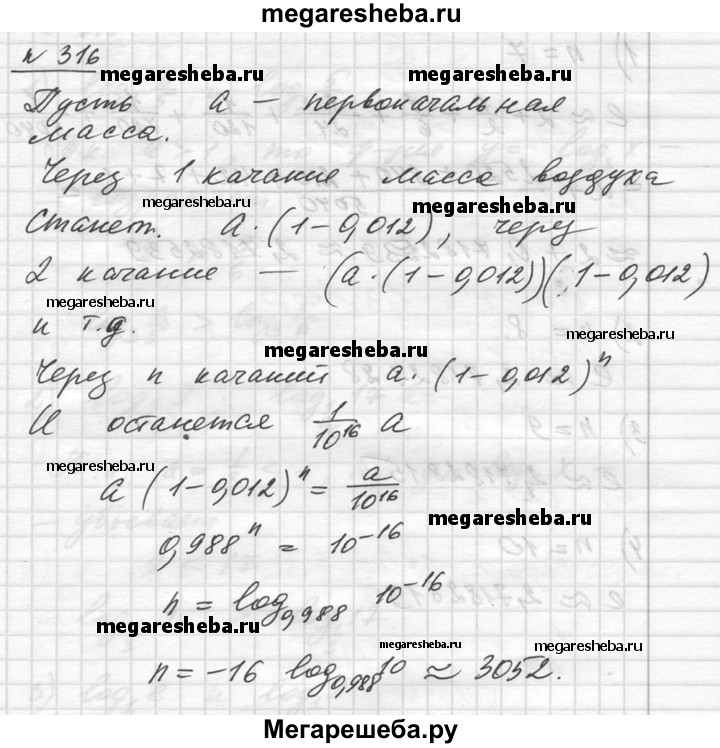 megaresheba.ru
№ 316
megaresheba.ru megaresheba.ru
Пусть a — первоначальная
масса.
Через 1 качание масса воздуха
megaresheba.ru megaresheba.ru
станет. a·(1-0,012), через
2 качание — (a·(1-0,012))(1-0,012)
megaresheba.ru
и т.д.
megaresheba.ru
megaresheba.ru
Через n качаний a·(1-0,012)^n
megaresheba.ru
И останется 1/10^16 a
megaresheba.ru
a (1-0,012)^n = a/10^16
megaresheba.ru
0,988^n = 10^-16
n = log_0,988 10^-16
megaresheba.ru
megaresheba.ru megaresheba.ru
n = -16 log_0,988 10 ≈ 3052.
Мегарешеба.ру